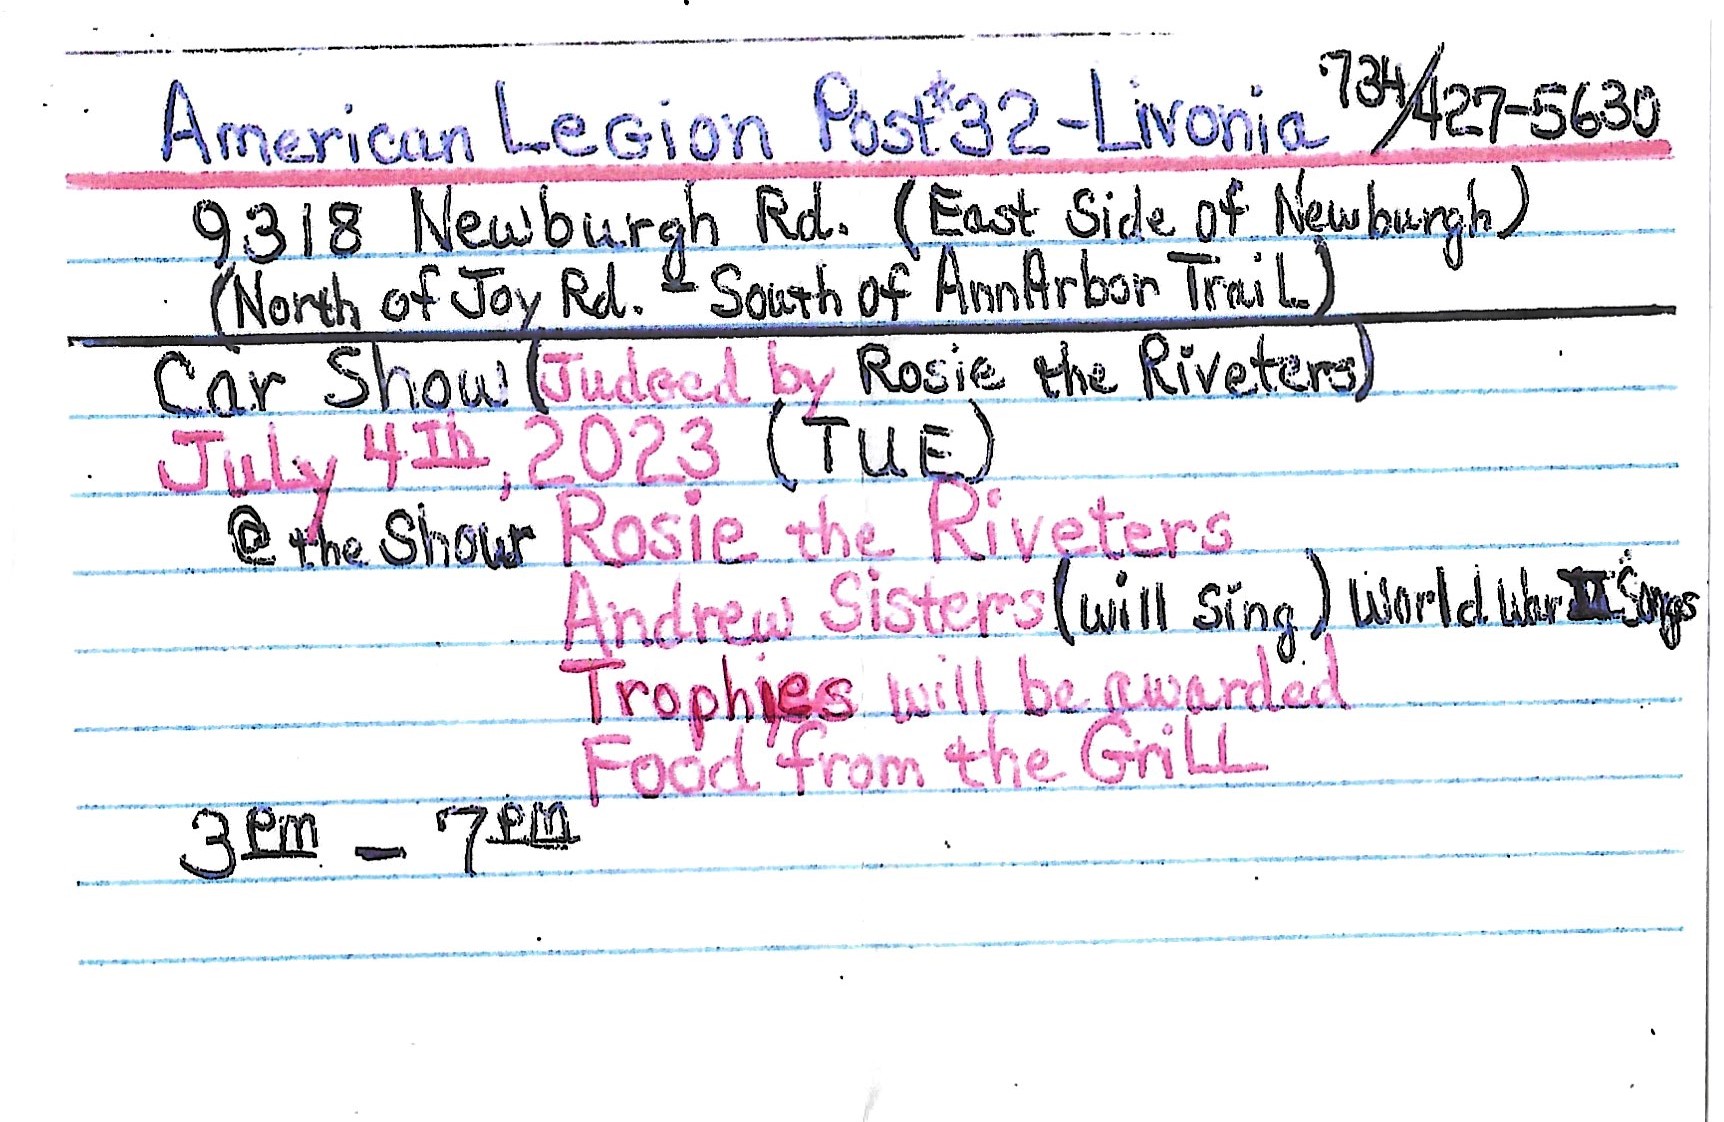 American Legion Post #32-Livonia 734/427-5630
9318 Newburgh Rd. (East Side of Newburgh)
(North of Joy Rd. - South of Ann Arbor Trail)
Car Show (Judged by Rosie the Riveters)
July 4th, 2023 (TUE)
@ the Show Rosie the Riveters
Andrew Sisters (will sing) World War II Songs
Trophies will be awarded
Food from the Grill
3pm - 7pm